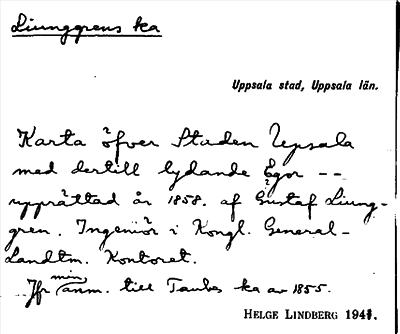 Ljunggrens ka
Uppsala stad, Uppsala län.
Karta öfver Staden Upsala
med dertill lydande Egor --
upprättad år 1858. af Gustaf Ljung-
gren. Ingeniör i Kongl. General-
Landtm. Kontoret.
Jfr min anm. till Taubes ka av 1855.
HELGE LINDBERG 1941.